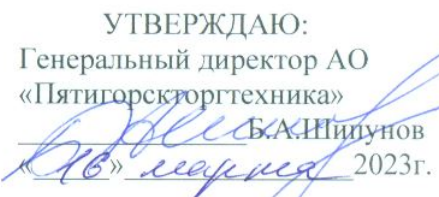 УТВЕРЖДАЮ:
Генеральный директор АО
«Пятигорскторгтехника»
Б.А.Шипунов
«16» марта 2023г.